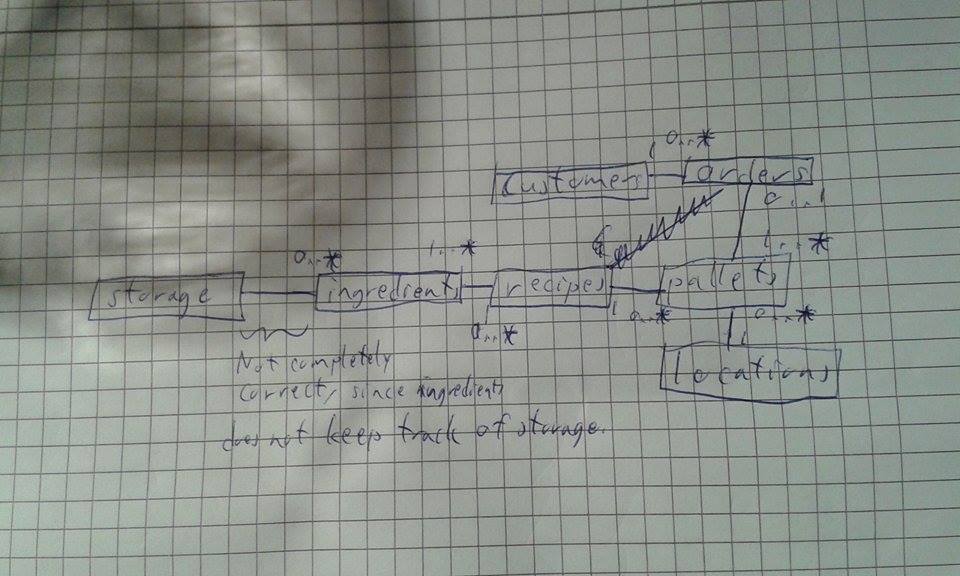 0..*
customers
orders
0...1
0..*
1...*
1...*
storage
ingredients
recipes
1
pallets
0..*
0..*
0...*
1
locations
Not completely
correct, since ingredients
does not keep track of storage.